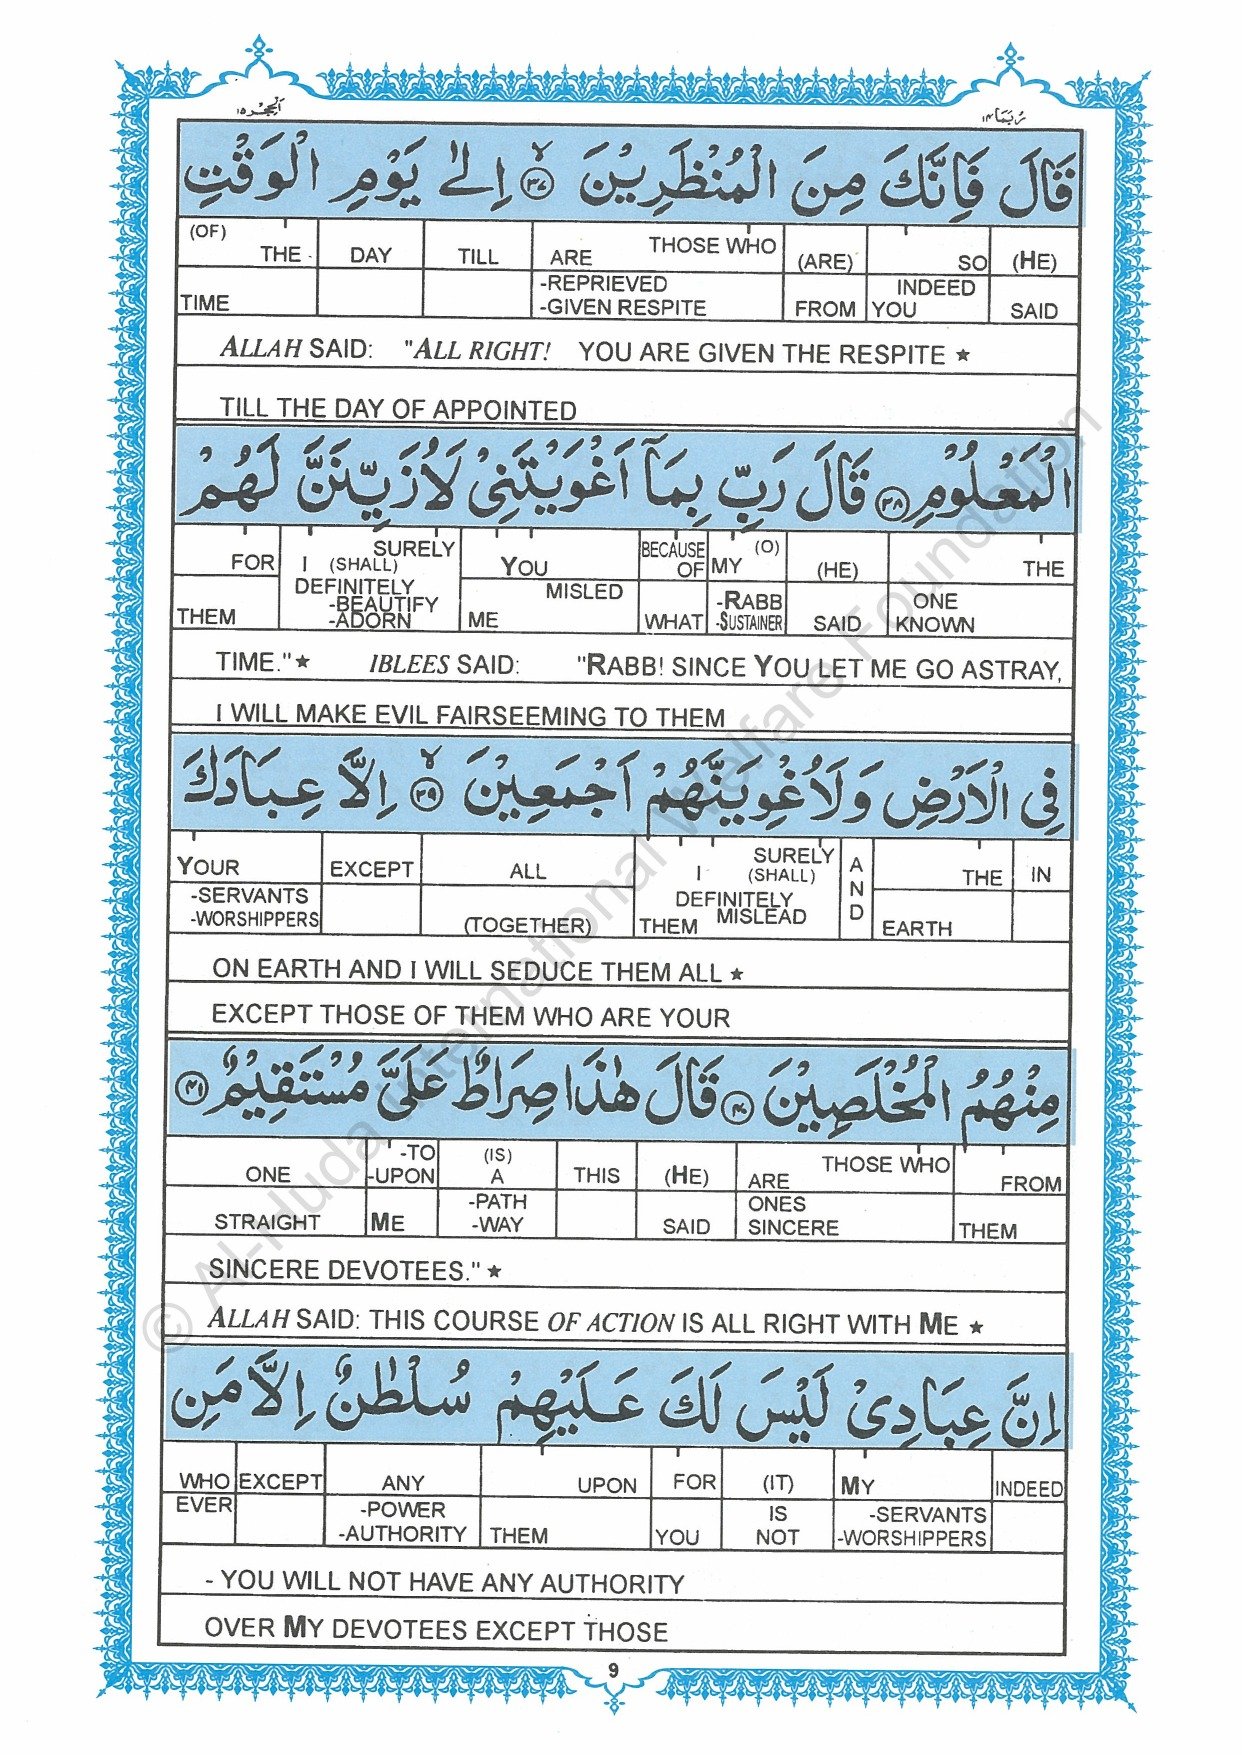 اَلْحِجْر ١٥
رُبَمَا ١٤
قَالَ فَاِنَّكَ مِنَ الْمُنْظَرِيْنَ ٣٧ اِلٰى يَوْمِ الْوَقْتِ
(OF) THE TIME DAY TILL THOSE WHO ARE -REPRIEVED -GIVEN RESPITE (ARE) FROM SO INDEED YOU (HE) SAID
ALLAH SAID: "ALL RIGHT! YOU ARE GIVEN THE RESPITE ★
TILL THE DAY OF APPOINTED
الْمَعْلُوْمِ ٣٨ قَالَ رَبِّ بِمَاۤ اَغْوَيْتَنِيْ لَاُزَيِّنَنَّ لَهُمْ
FOR THEM SURELY I (SHALL) DEFINITELY -BEAUTIFY -ADORN YOU MISLED ME BECAUSE OF WHAT (O) MY -RABB -SUSTAINER (HE) SAID THE ONE KNOWN
TIME."★ IBLEES SAID: "RABB! SINCE YOU LET ME GO ASTRAY,
I WILL MAKE EVIL FAIRSEEMING TO THEM
فِي الْاَرْضِ وَلَاُغْوِيَنَّهُمْ اَجْمَعِيْنَ ٣٩ اِلَّا عِبَادَكَ
YOUR -SERVANTS -WORSHIPPERS EXCEPT ALL (TOGETHER) SURELY I (SHALL) DEFINITELY MISLEAD THEM AND THE EARTH IN
ON EARTH AND I WILL SEDUCE THEM ALL ★
EXCEPT THOSE OF THEM WHO ARE YOUR
مِنْهُمُ الْمُخْلَصِيْنَ ٤٠ قَالَ هٰذَا صِرَاطٌ عَلَيَّ مُسْتَقِيْمٌ ٤١
ONE STRAIGHT -TO -UPON ME (IS) A -PATH -WAY THIS (HE) SAID THOSE WHO ARE ONES SINCERE FROM THEM
SINCERE DEVOTEES." ★
ALLAH SAID: THIS COURSE OF ACTION IS ALL RIGHT WITH ME ★
اِنَّ عِبَادِيْ لَيْسَ لَكَ عَلَيْهِمْ سُلْطٰنٌ اِلَّا مَنِ
WHO EVER EXCEPT ANY -POWER -AUTHORITY UPON THEM FOR YOU (IT) IS NOT MY -SERVANTS -WORSHIPPERS INDEED
- YOU WILL NOT HAVE ANY AUTHORITY
OVER MY DEVOTEES EXCEPT THOSE
9
© Al-Huda International Welfare Foundation